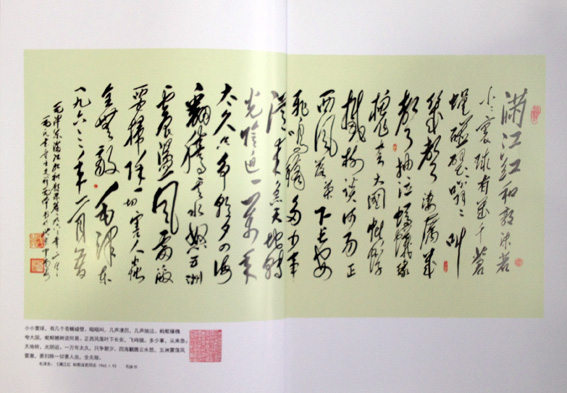 满江红 和郭沫若
小小寰球有几个苍
蝇碰壁嗡嗡叫
几声凄厉几
声抽泣蚂蚁缘
槐夸大国蚍蜉
撼树谈何易正
西风落叶下长安
飞鸣镝多少事
从来急天地转
光阴迫一万年
太久只争朝夕四海
翻腾云水怒五洲
震荡风雷激
要扫除一切害人虫
全无敌 毛泽东
一九六三年一月
小小寰球，有几个苍蝇碰壁。嗡嗡叫，几声凄厉，几声抽泣。蚂蚁缘槐
夸大国，蚍蜉撼树谈何易。正西风落叶下长安，飞鸣镝。多少事，从来急；
天地转，光阴迫。一万年太久，只争朝夕。四海翻腾云水怒，五洲震荡风
雷激。要扫除一切害人虫，全无敌。
毛泽东：《满江红 和郭沫若同志》1963.1